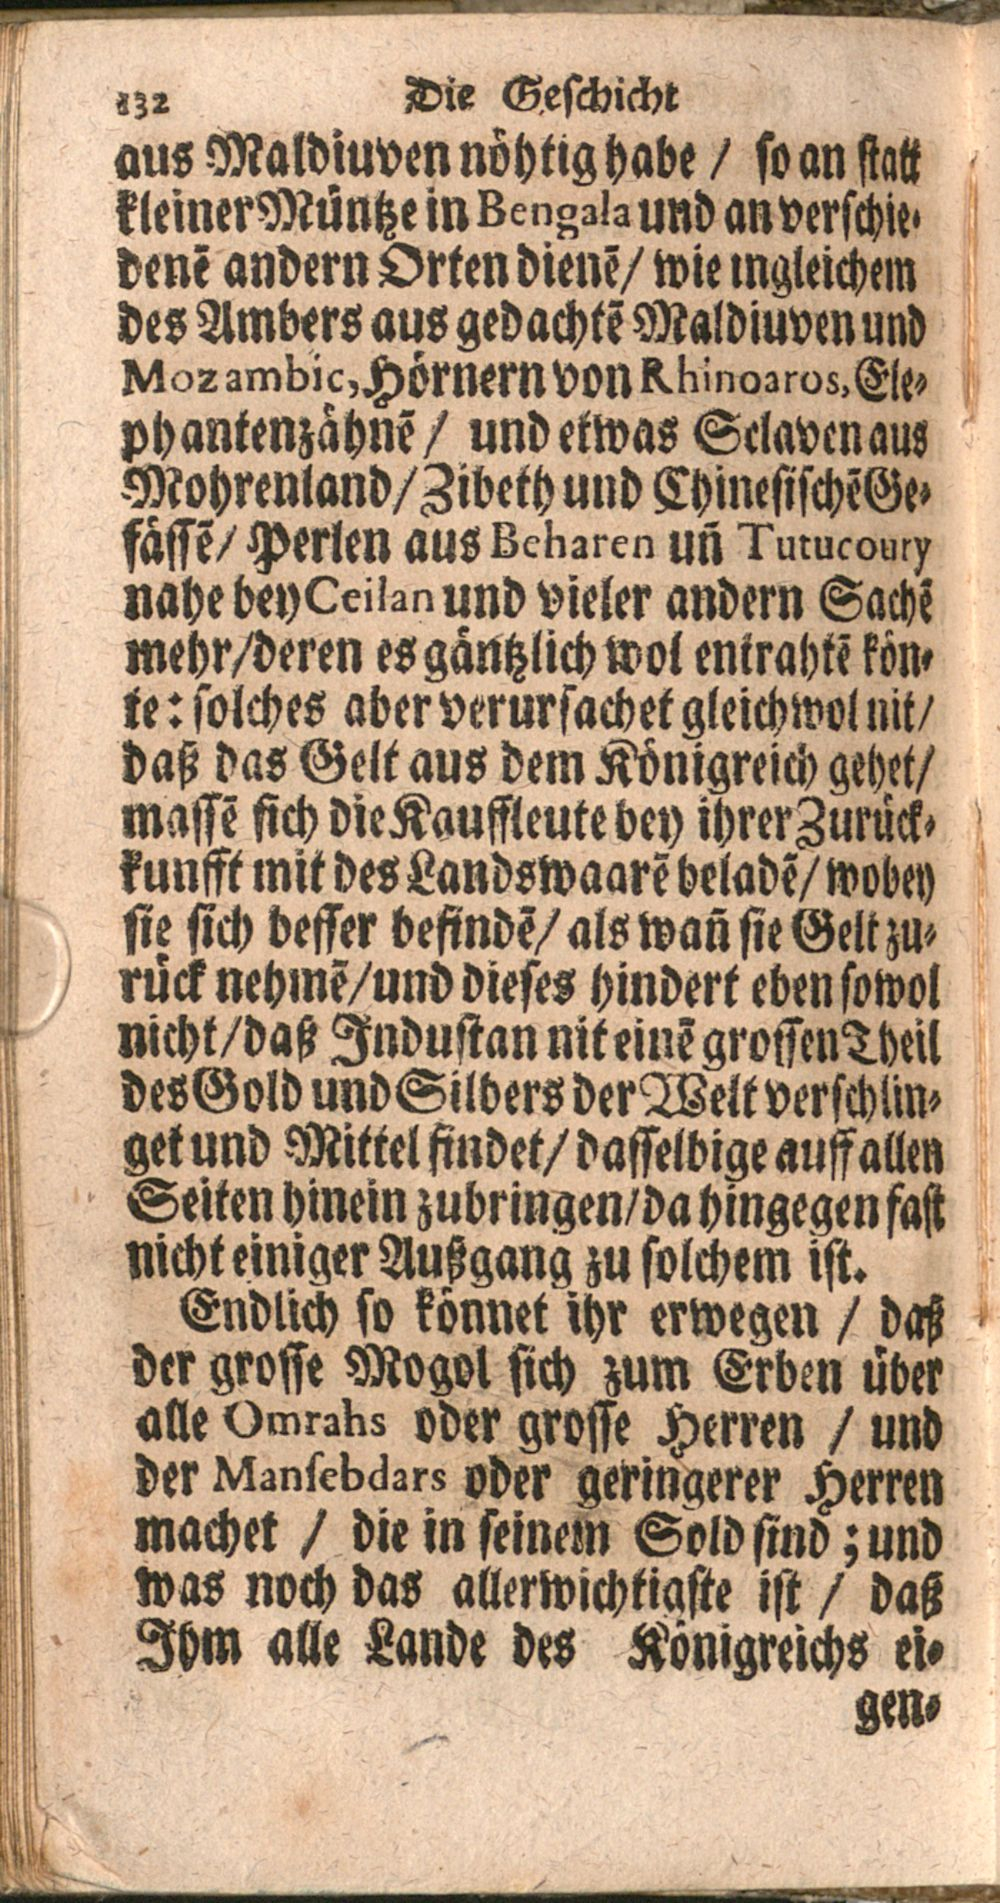 132 Die Geſchicht
aus Maldiuven nöhtig habe / ſo an ſtatt
kleiner Müntze in Bengala und an verſchie-
denē andern Orten dienē/ wie ingleichem
des Ambers aus gedachtē Maldiuven und
Mozambic, Hörnern von Rhinoaros, Ele-
phantenzähnē / und etwas Sclaven aus
Mohrenland/ Zibeth und Chineſiſchē Ge-
fäſſē/ Perlen aus Beharen uñ Tutucoury
nahe bey Ceilan und vieler andern Sachē
mehr/deren es gäntzlich wol entrahtē kön-
te: ſolches aber verurſachet gleichwol nit/
daß das Gelt aus dem Königreich gehet/
maſſē ſich die Kauffleute bey ihrer Zurück-
kunfft mit des Landswaarē beladē/ wobey
ſie ſich beſſer befindē/ als wañ ſie Gelt zu-
rück nehmē/und dieſes hindert eben ſowol
nicht/daß Induſtan nit einē groſſen Theil
des Gold und Silbers der Welt verſchlin-
get und Mittel findet/ daſſelbige auff allen
Seiten hinein zubringen/da hingegen faſt
nicht einiger Außgang zu ſolchem iſt.
Endlich ſo könnet ihr erwegen / daß
der groſſe Mogol ſich zum Erben über
alle Omrahs oder groſſe Herren / und
der Manſebdars oder geringerer Herren
machet / die in ſeinem Sold ſind ; und
was noch das allerwichtigſte iſt / daß
Ihm alle Lande des Königreichs ei-
gen-